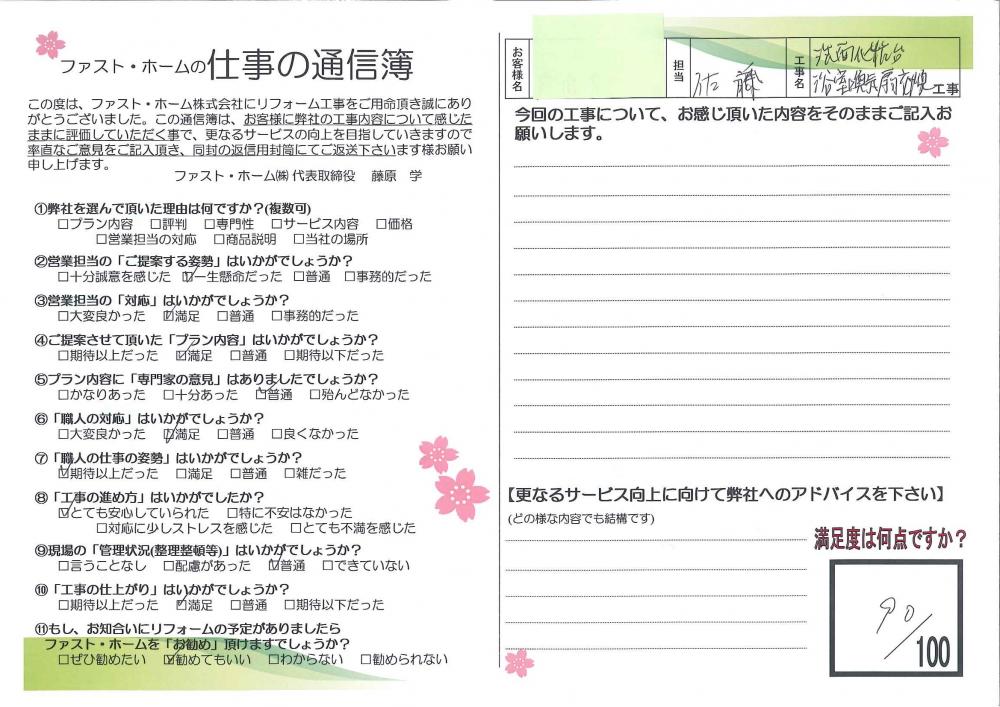 ファスト・ホームの仕事の通信簿
この度は、ファスト・ホーム株式会社にリフォーム工事をご用命頂き誠にあり
がとうございました。この通信簿は、お客様に弊社の工事内容について感じた
ままに評価していただく事で、更なるサービスの向上を目指していきますので
率直なご意見をご記入頂き、同封の返信用封筒にてご返送下さいます様お願い
申し上げます。
ファスト・ホーム㈱ 代表取締役 藤原 学
①弊社を選んで頂いた理由は何ですか?(複数可)
□プラン内容 □評判 □専門性 □サービス内容 □価格
□営業担当の対応 □商品説明 □当社の場所
②営業担当の「ご提案する姿勢」はいかがでしょうか?
□十分誠意を感じた ☑一生懸命だった □普通 □事務的だった
③営業担当の「対応」はいかがでしょうか?
□大変良かった ☑満足 □普通 □事務的だった
④ご提案させて頂いた「プラン内容」はいかがでしょうか?
□期待以上だった ☑満足 □普通 □期待以下だった
⑤プラン内容に「専門家の意見」はありましたでしょうか?
□かなりあった □十分あった ☑普通 □殆んどなかった
⑥「職人の対応」はいかがでしょうか?
□大変良かった ☑満足 □普通 □良くなかった
⑦「職人の仕事の姿勢」はいかがでしょうか?
☑期待以上だった □満足 □普通 □雑だった
⑧「工事の進め方」はいかがでしたか?
☑とても安心していられた □特に不安はなかった
□対応に少しストレスを感じた □とても不満を感じた
⑨現場の「管理状況(整理整頓等)」はいかがでしょうか?
□言うことなし □配慮があった ☑普通 □できていない
⑩「工事の仕上がり」はいかがでしょうか?
□期待以上だった ☑満足 □普通 □期待以下だった
⑪もし、お知合いにリフォームの予定がありましたら
ファスト・ホームを「お勧め」頂けますでしょうか?
□ぜひ勧めたい ☑勧めてもいい □わからない □勧められない
お客様名
担当
佐藤
工事名
洗面化粧台
浴室換気扇交換工事
今回の工事について、お感じ頂いた内容をそのままご記入お
願いします。
【更なるサービス向上に向けて弊社へのアドバイスを下さい】
(どの様な内容でも結構です)
満足度は何点ですか?
90/100